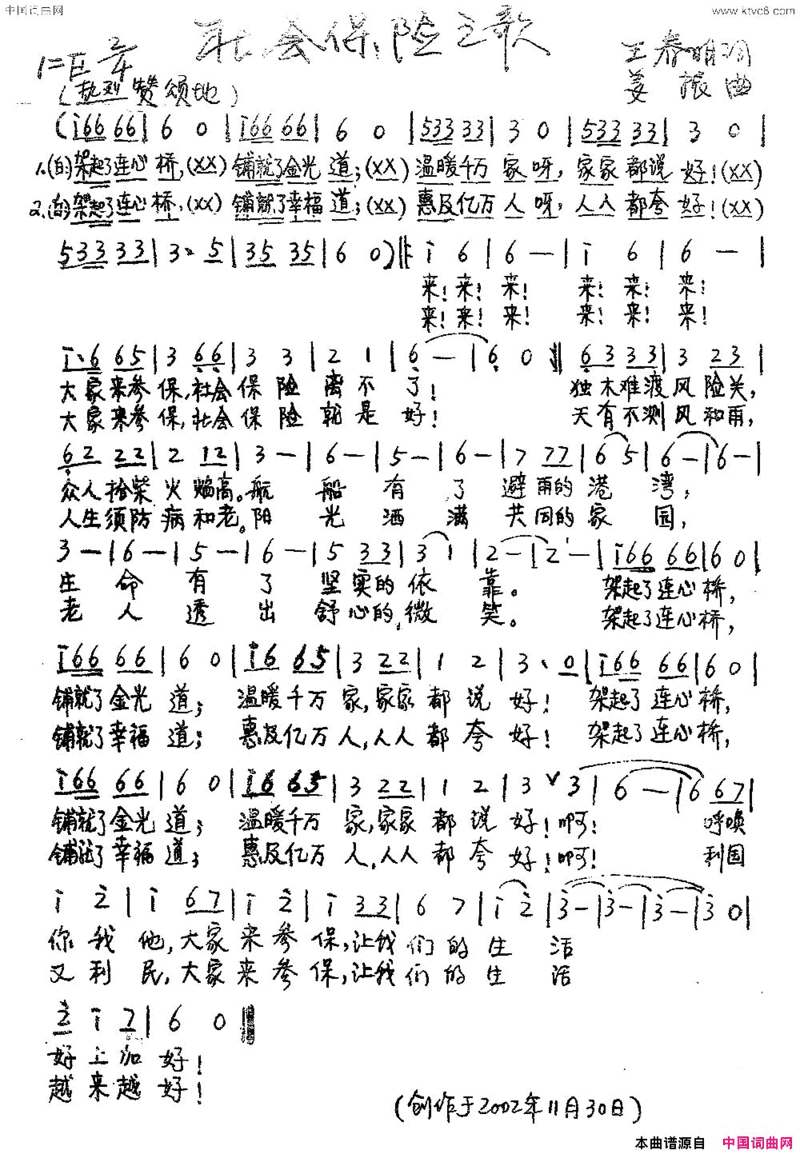 中国词曲网
www.ktvc8.com
社会保险之歌
王春明词
姜振曲
(热烈 赞颂地)
(i66 66|6 0|i66 66|6 0|533 33|3 0|533 33|3 0|
1.(的)架起了连心桥,(XX)铺就了金光道;(XX)温暖千万家呀,家家都说好!(XX)
2.(的)架起了连心桥,(XX)铺就了幸福道;(XX)惠及亿万人呀,人人都夸好!(XX)
533 33|3· 5|35 35|6 0)‖: i 6|6 —|i 6|6 —|
来!来!来! 来!来!来!
来!来!来! 来!来!来!
i·6 65|3 66|3 3|2 1|6 —|6 0‖ 6333|3 23|
大家来参保,社会保险离不了! 独木难渡风险关,
大家来参保,社会保险就是好! 天有不测风和雨,
62 22|2 12|3 —|6 —|5 —|6 —|7 77|6 5|6 —|6 —|
众人拾柴火焰高。航船有了避雨的港湾,
人生须防病和老。阳光洒满共同的家园,
3 —|6 —|5 —|6 —|5 33|3 1|2 —|2 —|i66 66|6 0|
生命有了坚实的依靠。 架起了连心桥,
老人透出舒心的微笑。 架起了连心桥,
i66 66|6 0|i6 65|3 22|1 2|3· 0|i66 66|6 0|
铺就了金光道;温暖千万家,家家都说好!架起了连心桥,
铺就了幸福道;惠及亿万人,人人都夸好!架起了连心桥,
i66 66|6 0|i6 65|3 22|1 2|3 ∨ 3|6 —|6 67|
铺就了金光道;温暖千万家,家家都说好!啊! 呼唤
铺就了幸福道;惠及亿万人,人人都夸好!啊! 利国
i 2|i 67|i 2|i 33|6 7|i 2|3 —|3 —|3 —|3 0|
你我他,大家来参保,让我们的生活
又利民,大家来参保,让我们的生活
2 i 7|6 0‖
好上加好!
越来越好!
(创作于2002年11月30日)
本曲谱源自 中国词曲网